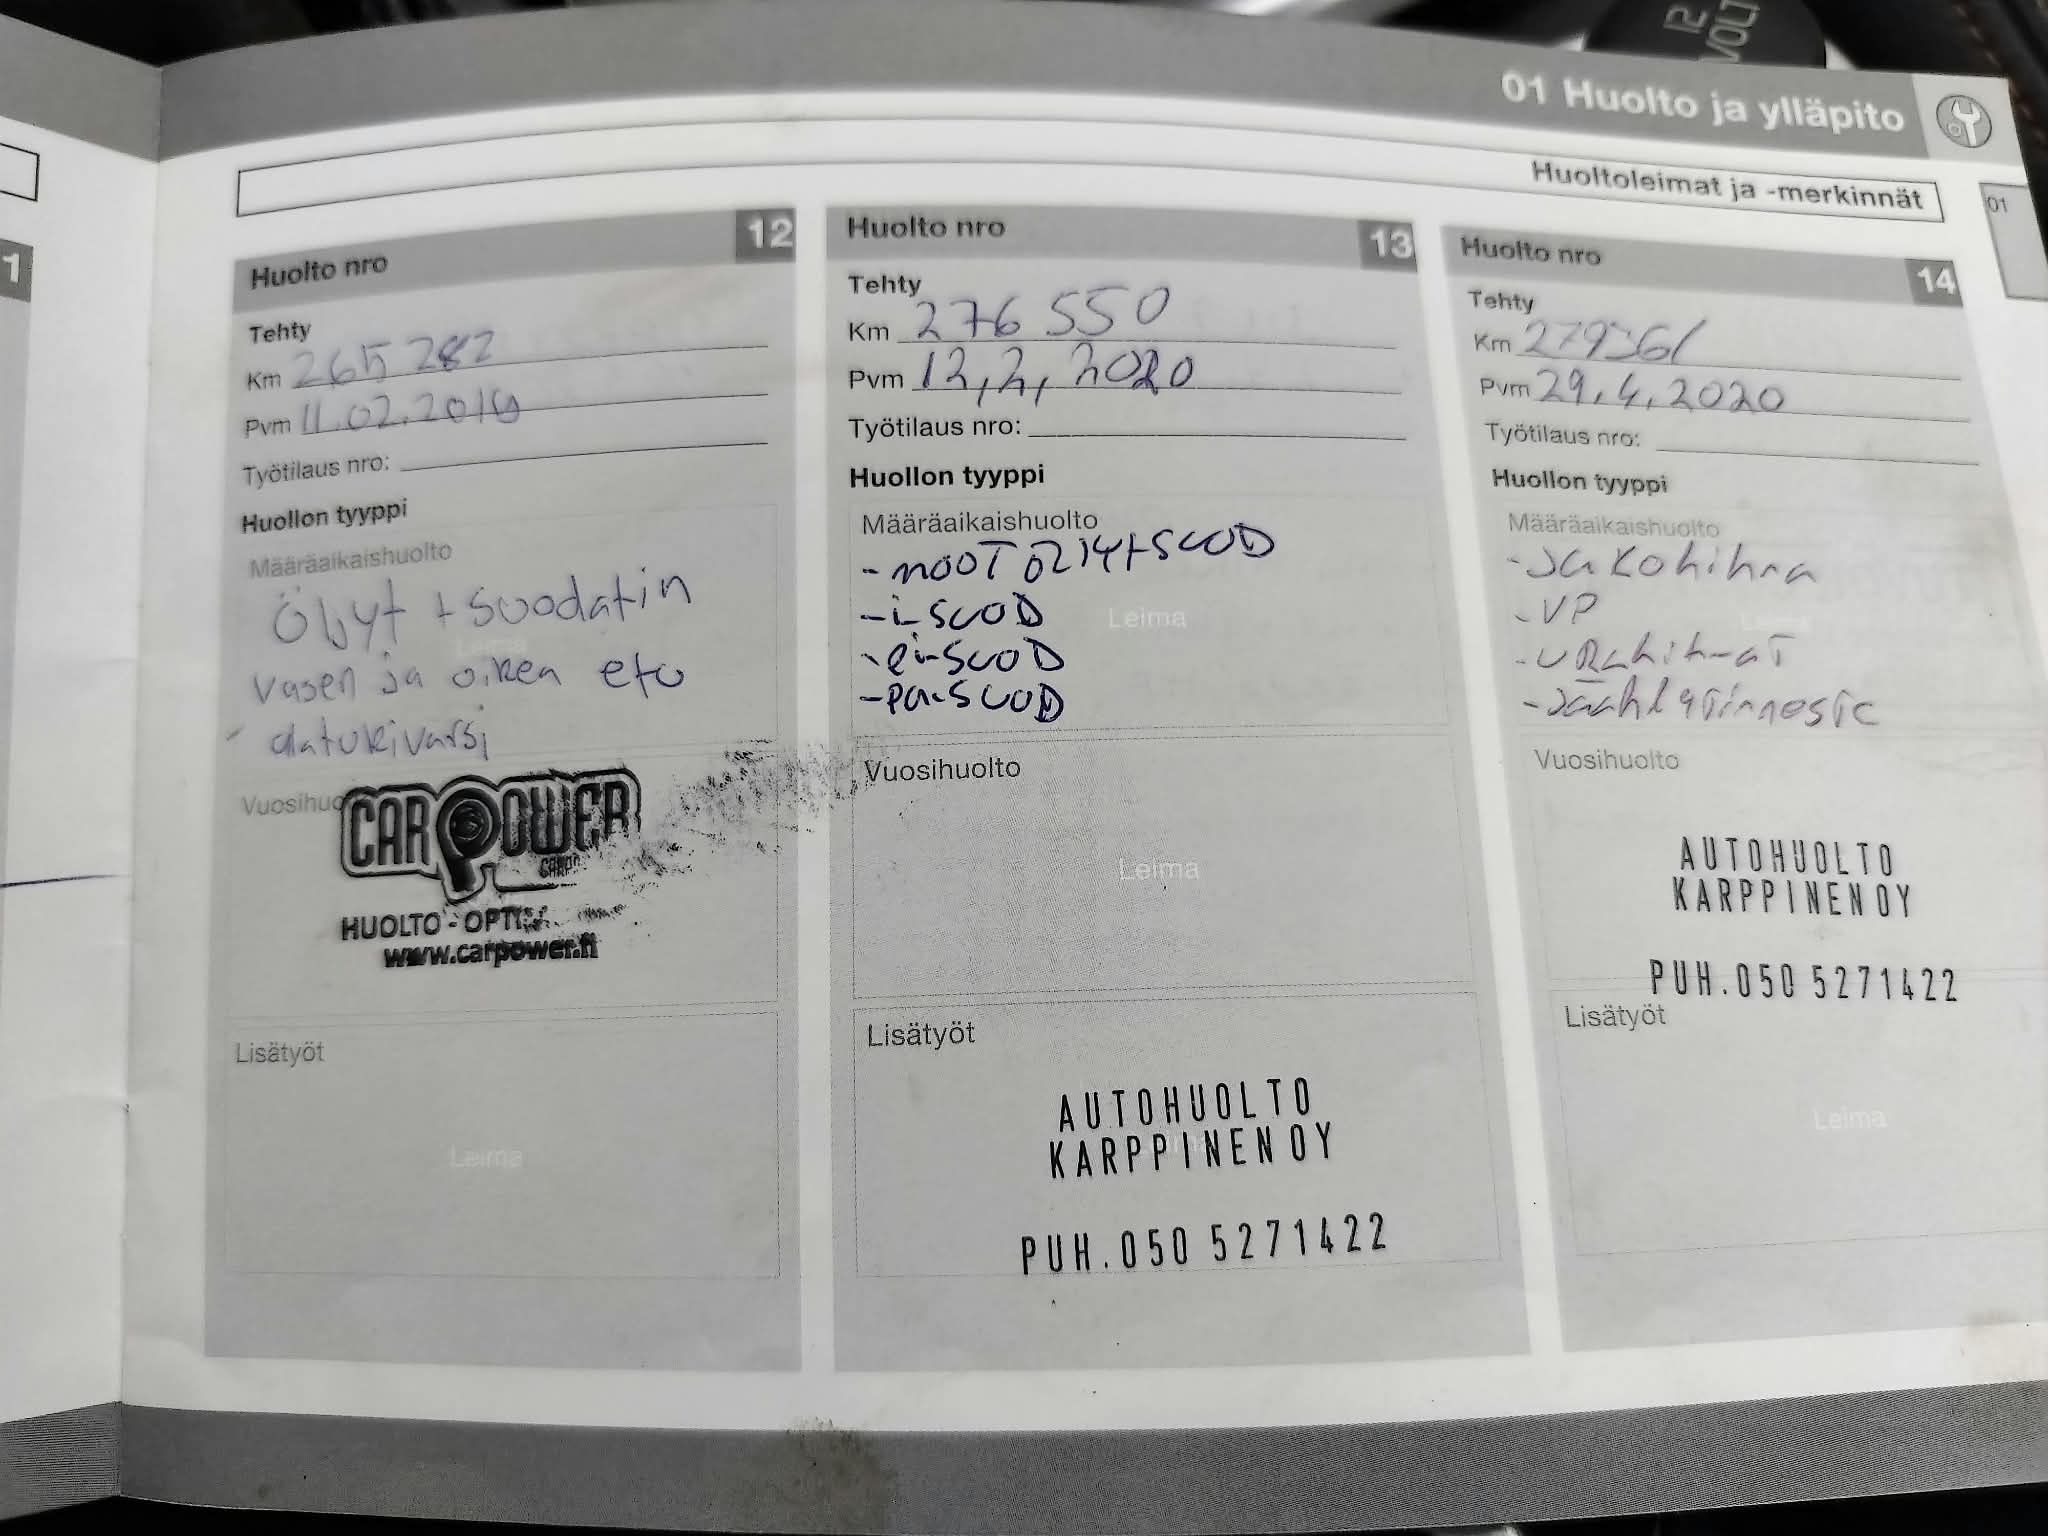 12 VOLT
01 Huolto ja ylläpito
Huoltoleimat ja -merkinnät
01
1
Huolto nro 12
Tehty
Km 265 282
Pvm 11.02.2019
Työtilaus nro:
Huollon tyyppi
Määräaikaishuolto
Öljyt + suodatin
vasen ja oikea etu
alatukivarsi
Leima
Vuosihuo
CARPOWER
HUOLTO - OPTI
www.carpower.fi
Lisätyöt
Leima
Huolto nro 13
Tehty
Km 276 550
Pvm 12,2, 2020
Työtilaus nro:
Huollon tyyppi
Määräaikaishuolto
- MOOT ÖLJYT+SUOD
- i-SUOD
Leima
- Ei-SUOD
- PA-SUOD
Vuosihuolto
Leima
Lisätyöt
AUTOHUOLTO
KARPPINEN OY
PUH.050 5271422
Huolto nro 14
Tehty
Km 279361
Pvm 29.4.2020
Työtilaus nro:
Huollon tyyppi
Määräaikaishuolto
- Jakohihna
- VP
- URahihnat
- Jäähdytinneste
Vuosihuolto
AUTOHUOLTO
KARPPINEN OY
PUH.050 5271422
Lisätyöt
Leima